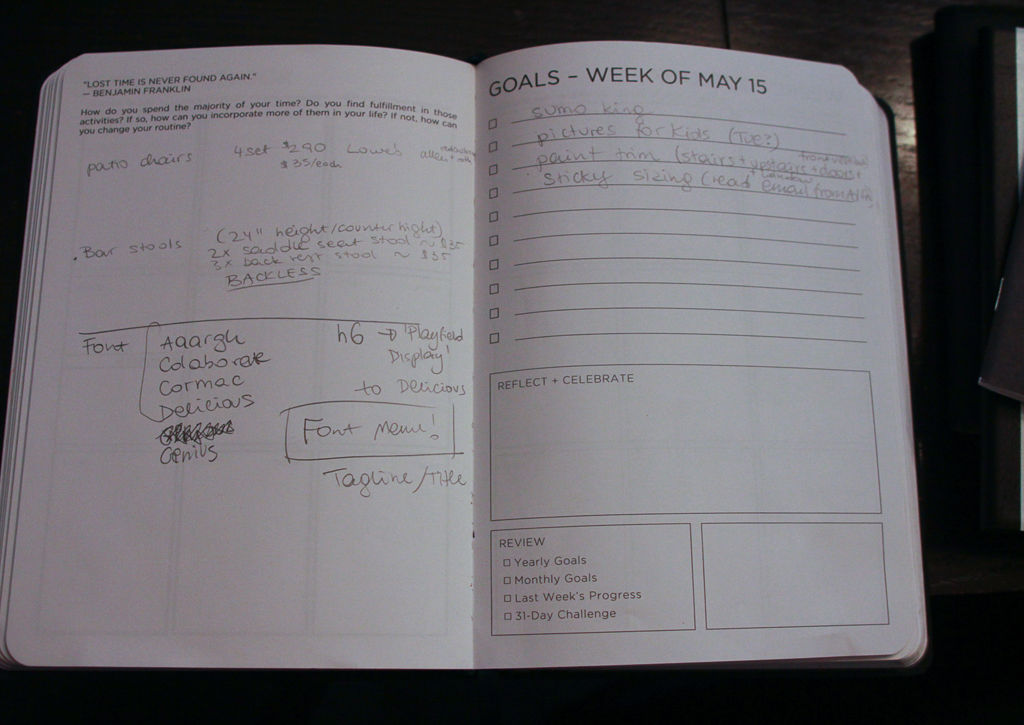 "LOST TIME IS NEVER FOUND AGAIN."
— BENJAMIN FRANKLIN
How do you spend the majority of your time? Do you find fulfillment in those
activities? If so, how can you incorporate more of them in your life? If not, how can
you change your routine?
patio chairs 4 set $290 Lowe's allen + roth
$35/each
. Bar stools (24" height/counter hight)
2x saddle seat stool ~ $35
3x back rest stool ~ $35
BACKLESS
Font Aaargh
Colaborate
Cormac
Delicious
Genius
h6 → 'Playfield
Display'
to Delicious
Font Meme!
Tagline/Title
GOALS – WEEK OF MAY 15
sumo king
pictures for kids (Tue?)
paint trim (stairs + upstairs + doors +
sticky sizing (read email from
REFLECT + CELEBRATE
REVIEW
Yearly Goals
Monthly Goals
Last Week's Progress
31-Day Challenge